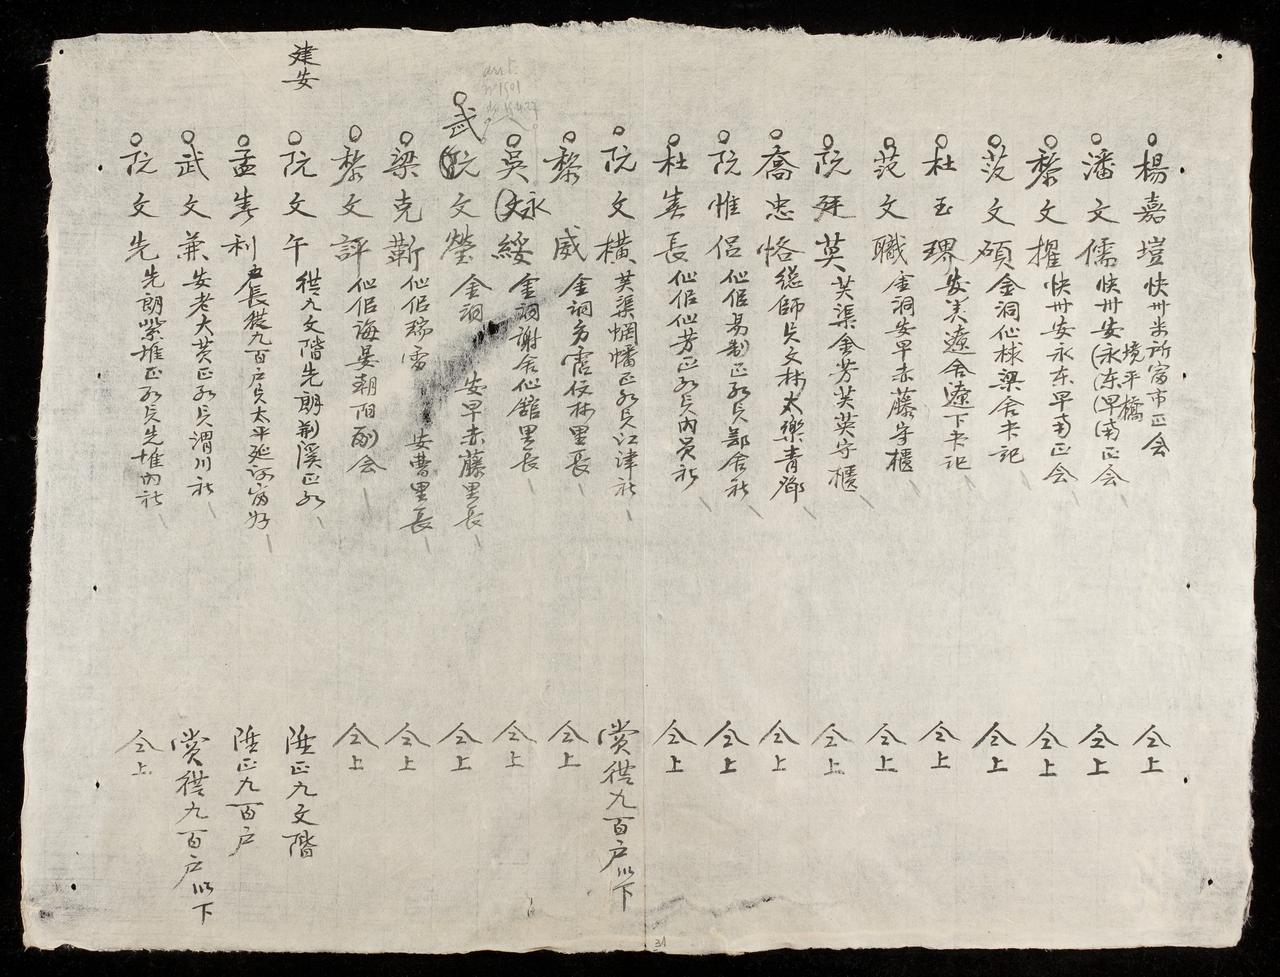 楊嘉塏快卅岩所富市正会 仝上
境平橋
潘文儒快卅安(永东(早南正会 仝上
黎文擢快卅安永东早南正会 仝上
范文碩金洞仙梂梁舍卡記 仝上
杜玉琾安美遼舍遼下卡記 仝上
范文職金洞安早赤藤守櫃 仝上
阮廷英芙渠金芳芙英守櫃 仝上
喬忠恪總師文林太樂青 仝上
阮惟侶仙侶易制正鄙舍社 仝上
杜春長仙侣仙芳正内社 仝上
阮文横芙渠惘幡正江津社 賞従九百户以下
黎威金洞方霑伎林里長 仝上
吳(文永綏金洞謝舍仙舘里長 仝上
武(阮文瑩金洞 安早赤藤里長 仝上
梁克蕲仙侣瑞雷 安曹里長 仝上
黎文評仙侣海晏朝阳副会 仝上
建安
阮文午從九文階先朗荆溪正 陞正九文階
孟春利長從九百户太平延河 陞正九百户
武文兼安老大黄正渭川社 賞從九百户以下
阮文先先朗紫堆正先堆内社 仝上
31